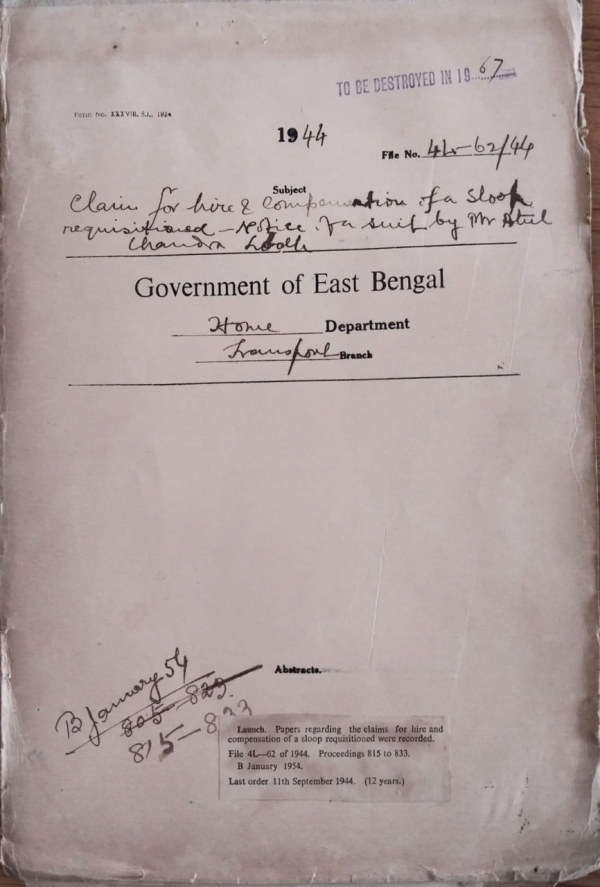 TO BE DESTROYED IN 1967
Form No. XXXVIII, S.I., 1924
1944
File No. 4L-62/44
Subject
Claim for hire & compensation of a sloop
requisitioned – Notice of a suit by Mr Atul
Chandra
Government of East Bengal
Home Department
Transport Branch
Abstracts.
B January 54
805 – 823.
815 – 833
Launch. Papers regarding the claims for hire and
compensation of a sloop requisitioned were recorded.
File 4L—62 of 1944. Proceedings 815 to 833.
B January 1954.
Last order 11th September 1944. (12 years.)